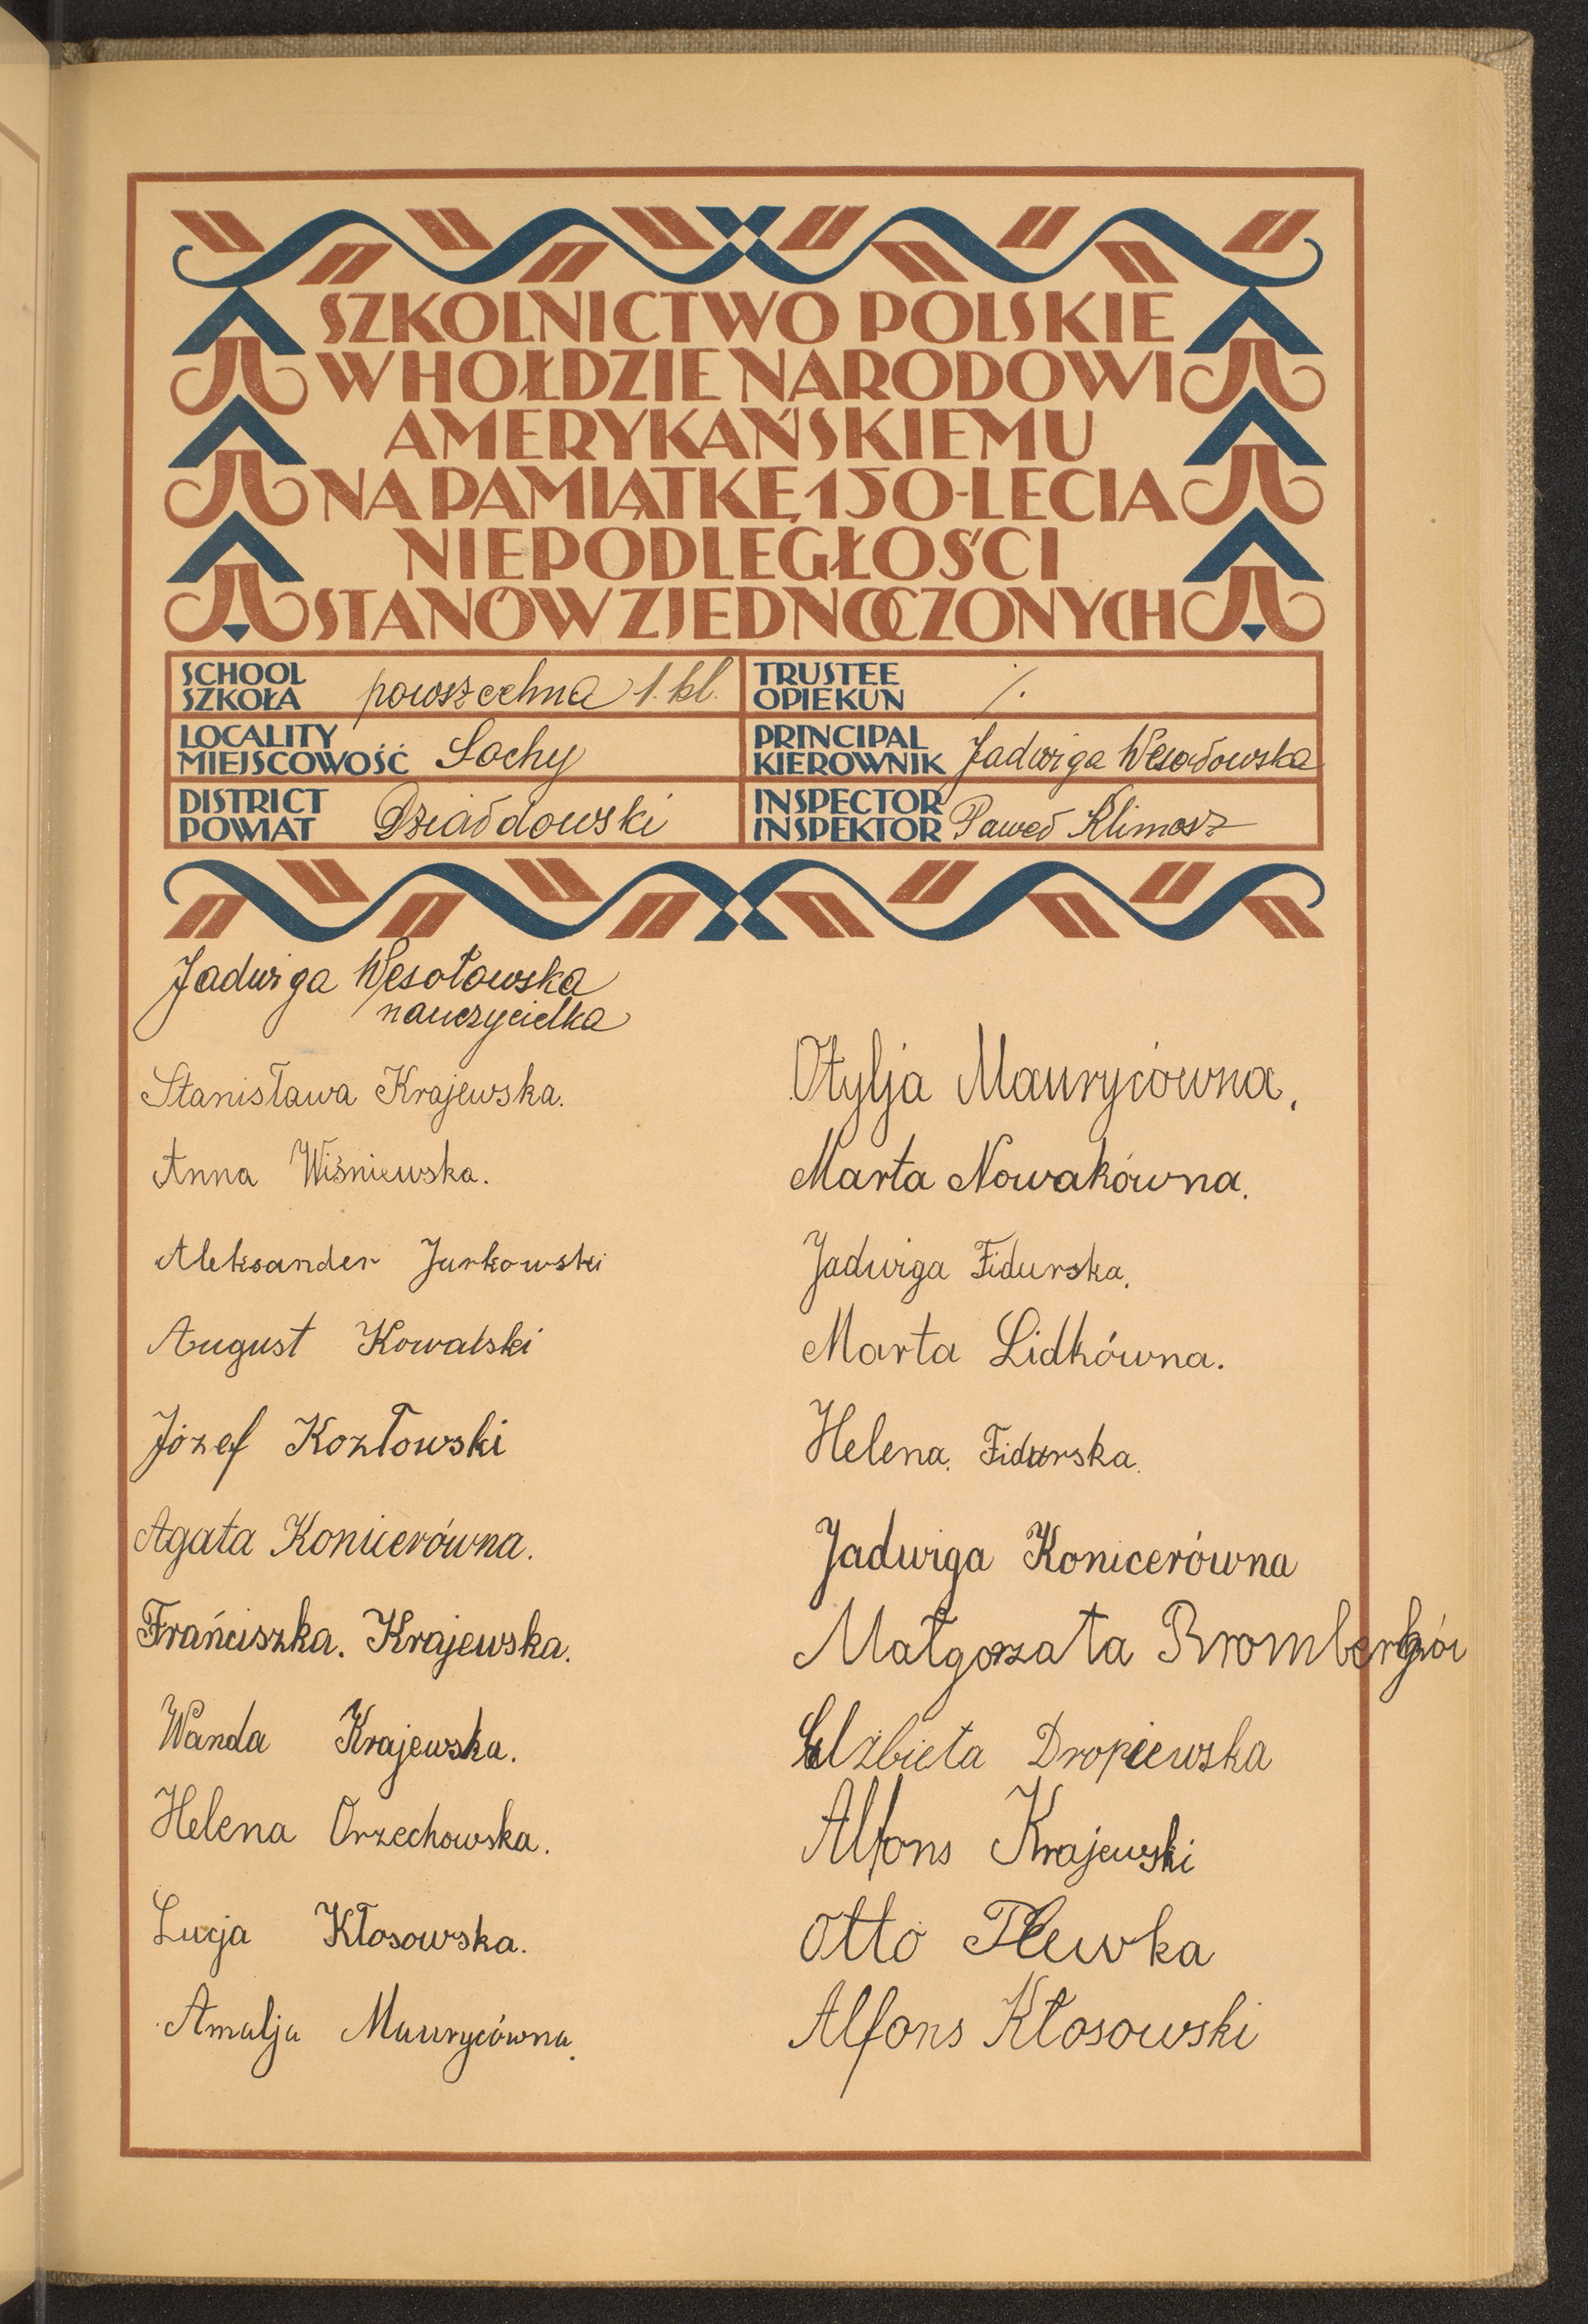 SZKOLNICTWO POLSKIE
W HOŁDZIE NARODOWI
AMERYKAŃSKIEMU
NA PAMIĄTKĘ 150-LECIA
NIEPODLEGŁOŚCI
STANÓW ZJEDNOCZONYCH
SCHOOL
SZKOŁA powszechna 1. kl.
TRUSTEE
OPIEKUN /.
LOCALITY
MIEJSCOWOŚĆ Sochy
PRINCIPAL
KIEROWNIK Jadwiga Wesołowska
DISTRICT
POWIAT Działdowski
INSPECTOR
INSPEKTOR Paweł Klimosz
Jadwiga Wesołowska
nauczycielka
Stanisława Krajewska.
Anna Wiśniewska.
Aleksander Jurkowski
August Kowalski
Józef Kozłowski
Agata Konicerówna.
Frańciszka. Krajewska.
Wanda Krajewska.
Helena Orzechowska.
Lucja Kłosowska.
Amalja Maurycówna.
Otylja Maurycówna.
Marta Nowakówna.
Jadwiga Fidurska.
Marta Lidkówna.
Helena. Fidurska.
Jadwiga Konicerówna
Małgorzata
Elżbieta Dropiewska
Alfons Krajewski
Otto Plewka
Alfons Kłosowski